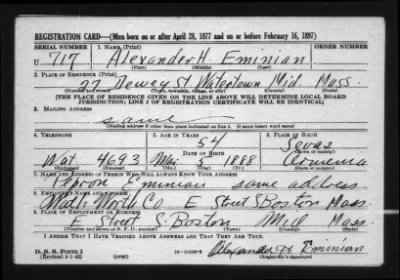 REGISTRATION CARD—(Men born on or after April 28, 1877 and on or before February 16, 1897)
SERIAL NUMBER 1. NAME (Print)
U 717 Alexander H. Eminian
(First) (Middle) (Last)
2. PLACE OF RESIDENCE (Print)
27 Dewey St. Watertown Mid. Mass.
(Number and street) (Town, township, village, or city) (County) (State)
[THE PLACE OF RESIDENCE GIVEN ON THE LINE ABOVE WILL DETERMINE LOCAL BOARD
JURISDICTION; LINE 2 OF REGISTRATION CERTIFICATE WILL BE IDENTICAL]
3. MAILING ADDRESS
same
[Mailing address if other than place indicated on line 2. If same insert word same]
4. TELEPHONE 5. AGE IN YEARS 6. PLACE OF BIRTH
54 Sevas
DATE OF BIRTH
Wat. 4693 Mar 5 1888 Armenia
7. NAME AND ADDRESS OF PERSON WHO WILL ALWAYS KNOW YOUR ADDRESS
Eminian same address
8. EMPLOYER'S NAME AND ADDRESS
Worth Co E Street S Boston Mass.
9. PLACE OF EMPLOYMENT OR BUSINESS
E Street S. Boston Mass.
(Number and street or R. F. D. number) (Town) (County) (State)
I AFFIRM THAT I HAVE VERIFIED ABOVE ANSWERS AND THAT THEY ARE TRUE.
D. S. S. FORM 1
(Revised 4-1-42) (over) Alexander H. Eminian
(Registrant's signature)